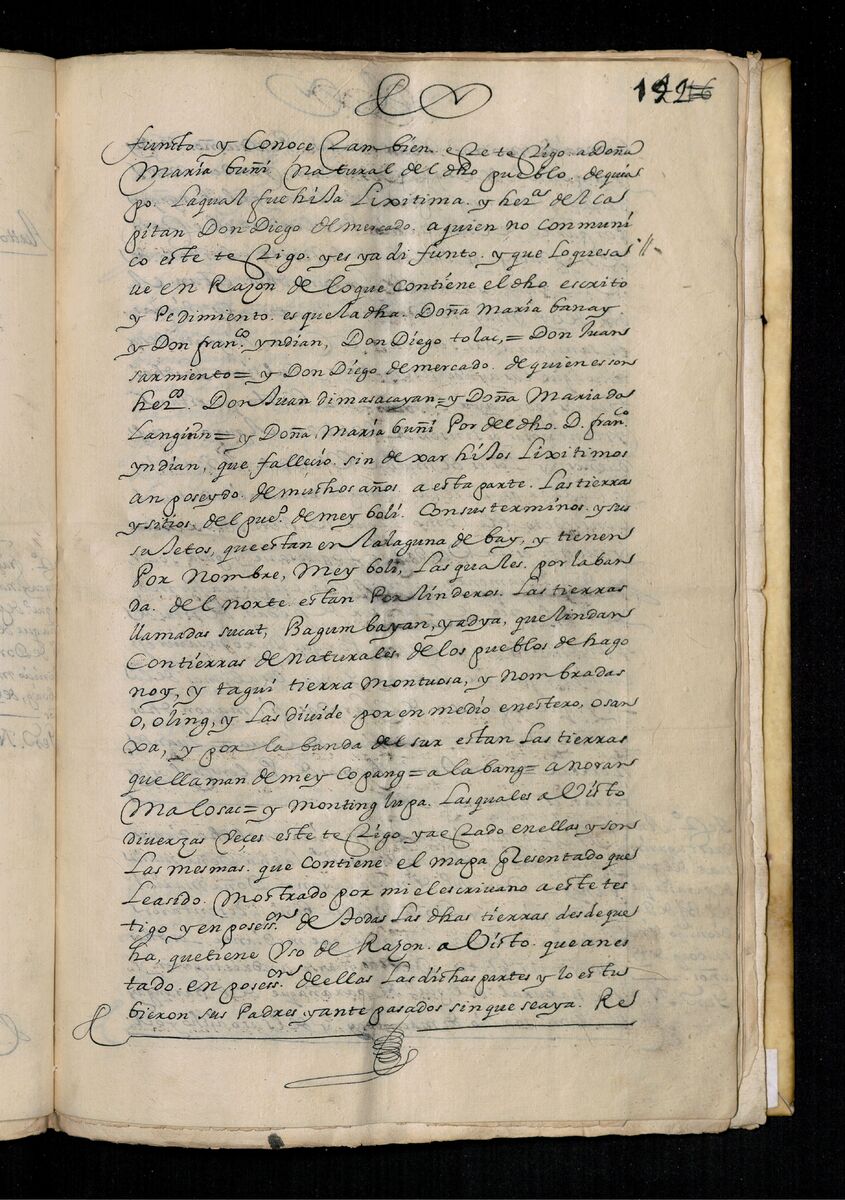 192
functo y Conoce tambien este testigo a Doña
Maria buñi Natural del dho pueblo de quia
po. Laqual fue hija Lixitima y herª del Ca
pitan Don Diego de mercado a quien no conmuni
co este testigo y es ya difunto y que lo que sa
ve en Razon de lo que contiene el dho escrito
y Pedimiento es que la dha Doña Maria banay
y Don franco yndian, Don Diego tolac,= Don Juan
sarmiento= y Don Diego de mercado de quien es son
heros Don Juan dimasacayan= y Doña Maria da
Langin= y Doña Maria buñi Por del dho D. franco
yndian, que fallecio sin dexar hijos Lixitimos
an poseydo de muchos años a esta parte Las tierras
y sitios del pueo de mey boli. Con sus terminos y sus
sujetos, que estan en la laguna de bay, y tienen
Por Nombre, Mey boli, Las quales por la ban
da del norte estan Por linderos Las tierras
llamadas sucat, Bagumbayan, y adya, que lindan
Con tierras de Naturales de los pueblos de hago
noy, y taguì tierra montuosa, y Nombradas
o, oling, y Las divide por en medio en estero, o san
xa, y por la banda del sur estan Las tierras
que llaman de mey copang= a la bang= a noran
Malosac= y Monting lupa. Las quales a Visto
diverzas Veçes este testigo y a estado en ellas y son
Las mesmas que Contiene el mapa presentado que
Le a sido Mostrado por mi el escrivano a este tes
tigo y en posesson de todas Las dhas tierras desde que
ha, que tiene Vso de Razon a Visto que an es
tado en posesson de ellas Las dichas partes y lo estu
bieron sus Padres y ante pasados sin que se aya Re